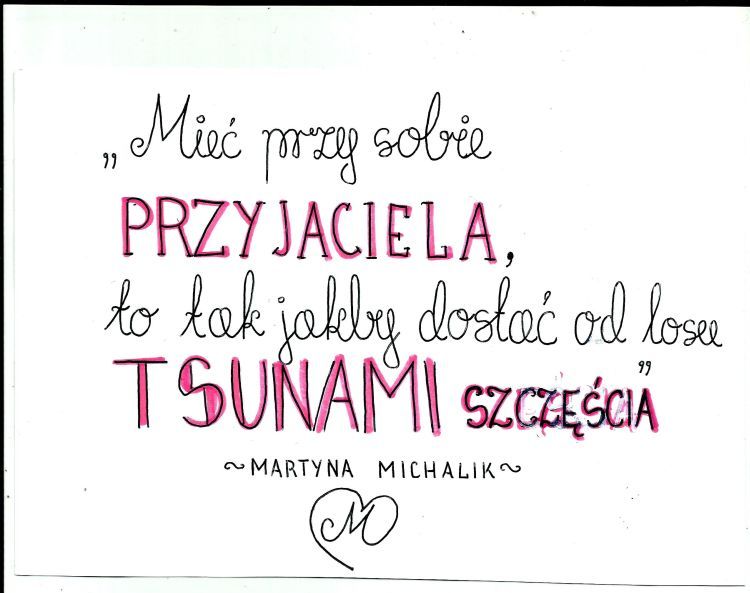 „Mieć przy sobie
PRZYJACIELA,
to tak jakby dostać od losu
TSUNAMI SZCZĘŚCIA”
~MARTYNA MICHALIK~
M